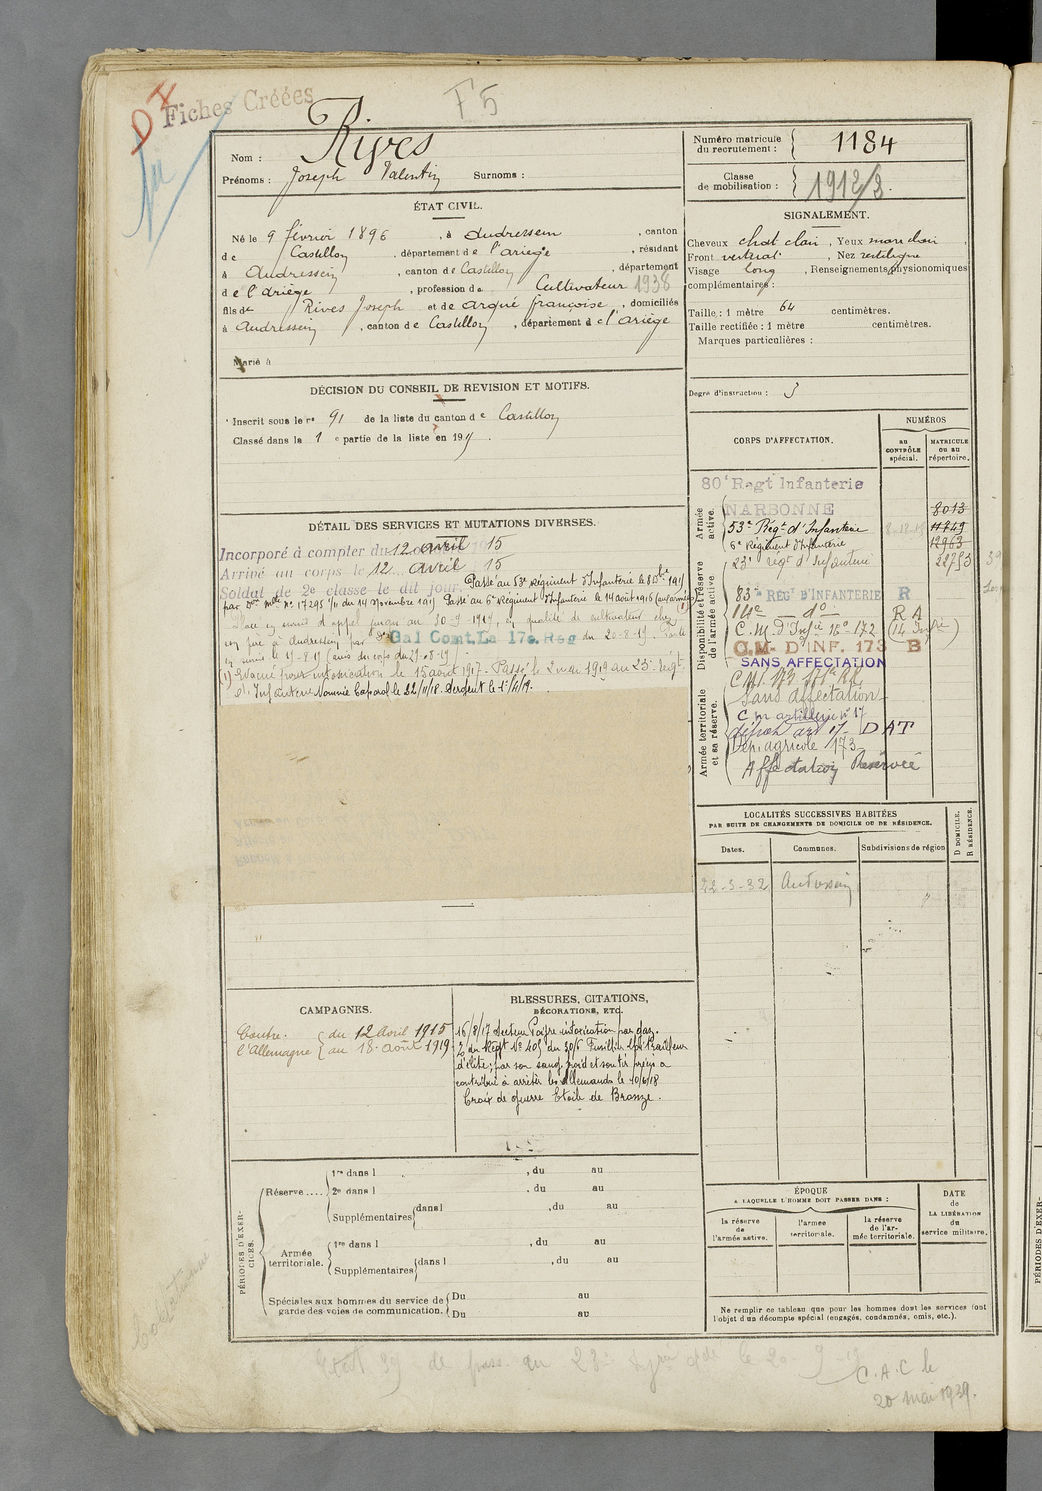 Fiches Créées
F5
Nom : Rives
Prénoms : Joseph Valentin Surnoms :
Numéro matricule du recrutement : 1184
Classe de mobilisation : 1912/3.
ÉTAT CIVIL.
Né le 9 février 1896, à Audressein, canton
de Castillon, département de l'ariège, résidant
à Audressein, canton de Castillon, département
de l'Ariège, profession de Cultivateur 1938
fils de Rives Joseph et de Arqué françoise, domiciliés
à Audressein, canton de Castillon, département de l'ariège
Marié à
SIGNALEMENT.
Cheveux chat clair, Yeux mar clair,
Front vertical, Nez rectiligne
Visage long, Renseignements physionomiques
complémentaires :
Taille : 1 mètre 64 centimètres.
Taille rectifiée : 1 mètre centimètres.
Marques particulières :
Degré d'instruction : 3
DÉCISION DU CONSEIL DE REVISION ET MOTIFS.
Inscrit sous le no 91 de la liste du canton de Castillon
Classé dans la 1e partie de la liste en 19
CORPS D'AFFECTATION.
NUMÉROS
au CONTRÔLE spécial.
MATRICULE ou au répertoire.
Armée active.
80e Regt Infanterie
NARBONNE 8013
53e Régt d'Infanterie 11749
6e Régiment d'Infanterie 12963
23e régt d'Infanterie 22753
Disponibilité et réserve de l'armée active.
83e REGT D'INFANTERIE R
14e do R A
C. M. d'Infie No 172 (14 Infie)
C.M. D'INF. 173 B
SANS AFFECTATION
Armée territoriale et sa réserve.
Sans affectation
C m artillerie no 17
DAT
Dép. agricole 173
Affectation Réservée
DÉTAIL DES SERVICES ET MUTATIONS DIVERSES.
Incorporé à compter du 12 avril 15
Arrivé au corps le 12 avril 15
Soldat de 2e classe le dit jour. Passé au 53e Régiment d'Infanterie le 8 Dbre 1915
par Don Melle No 17295 1/11 du 14 Novembre 1915 Passé au 6e Régiment d'Infanterie le 14 août 1916 (aux armées)
Placé en sursit d'appel jusqu'au 30-9-1919, en qualité de cultivateur chez
son père à Audressein par Gal Comt La 17e Reg du 20-8-19. Parti
en sursis le 17-8-19 (avis du corps du 27-8-19)
(1) Evacué pour intoxication le 15 août 1917 - Passé le 2 mai 1919 au 23e Régt
d'Infanterie Nommé Caporal le 22/11/18. Sergent le 1er/4/19.
LOCALITÉS SUCCESSIVES HABITÉES
PAR SUITE DE CHANGEMENTS DE DOMICILE OU DE RÉSIDENCE.
Dates. Communes. Subdivisions de région D DOMICILE. R RÉSIDENCE.
22-3-32 Audressein
CAMPAGNES.
Contre l'Allemagne
du 12 Avril 1915
au 18 août 1919
BLESSURES, CITATIONS,
DÉCORATIONS, ETC.
16/8/17 Secteur intoxication par gaz.
du Régt No 405 du 30/6 Fusilier mitrailleur
d'élite ; par son sang froid et son tir précis a
contribué à arrêter les Allemands le 10/6/18
Croix de guerre Etoile de Bronze.
PÉRIODES D'EXERCICES.
Réserve ....
1re dans l , du au
2e dans l , du au
Supplémentaires dans l , du au
Armée territoriale.
1re dans l , du au
Supplémentaires dans l , du au
Spéciales aux hommes du service de garde des voies de communication.
Du au
Du au
ÉPOQUE
A LAQUELLE L'HOMME DOIT PASSER DANS :
la réserve de l'armée active.
l'armée territoriale.
la réserve de l'armée territoriale.
DATE de LA LIBÉRATION du service militaire.
Ne remplir ce tableau que pour les hommes dont les services font
l'objet d'un décompte spécial (engagés, condamnés, omis, etc.).
C.A.C le
20 mai 1939.